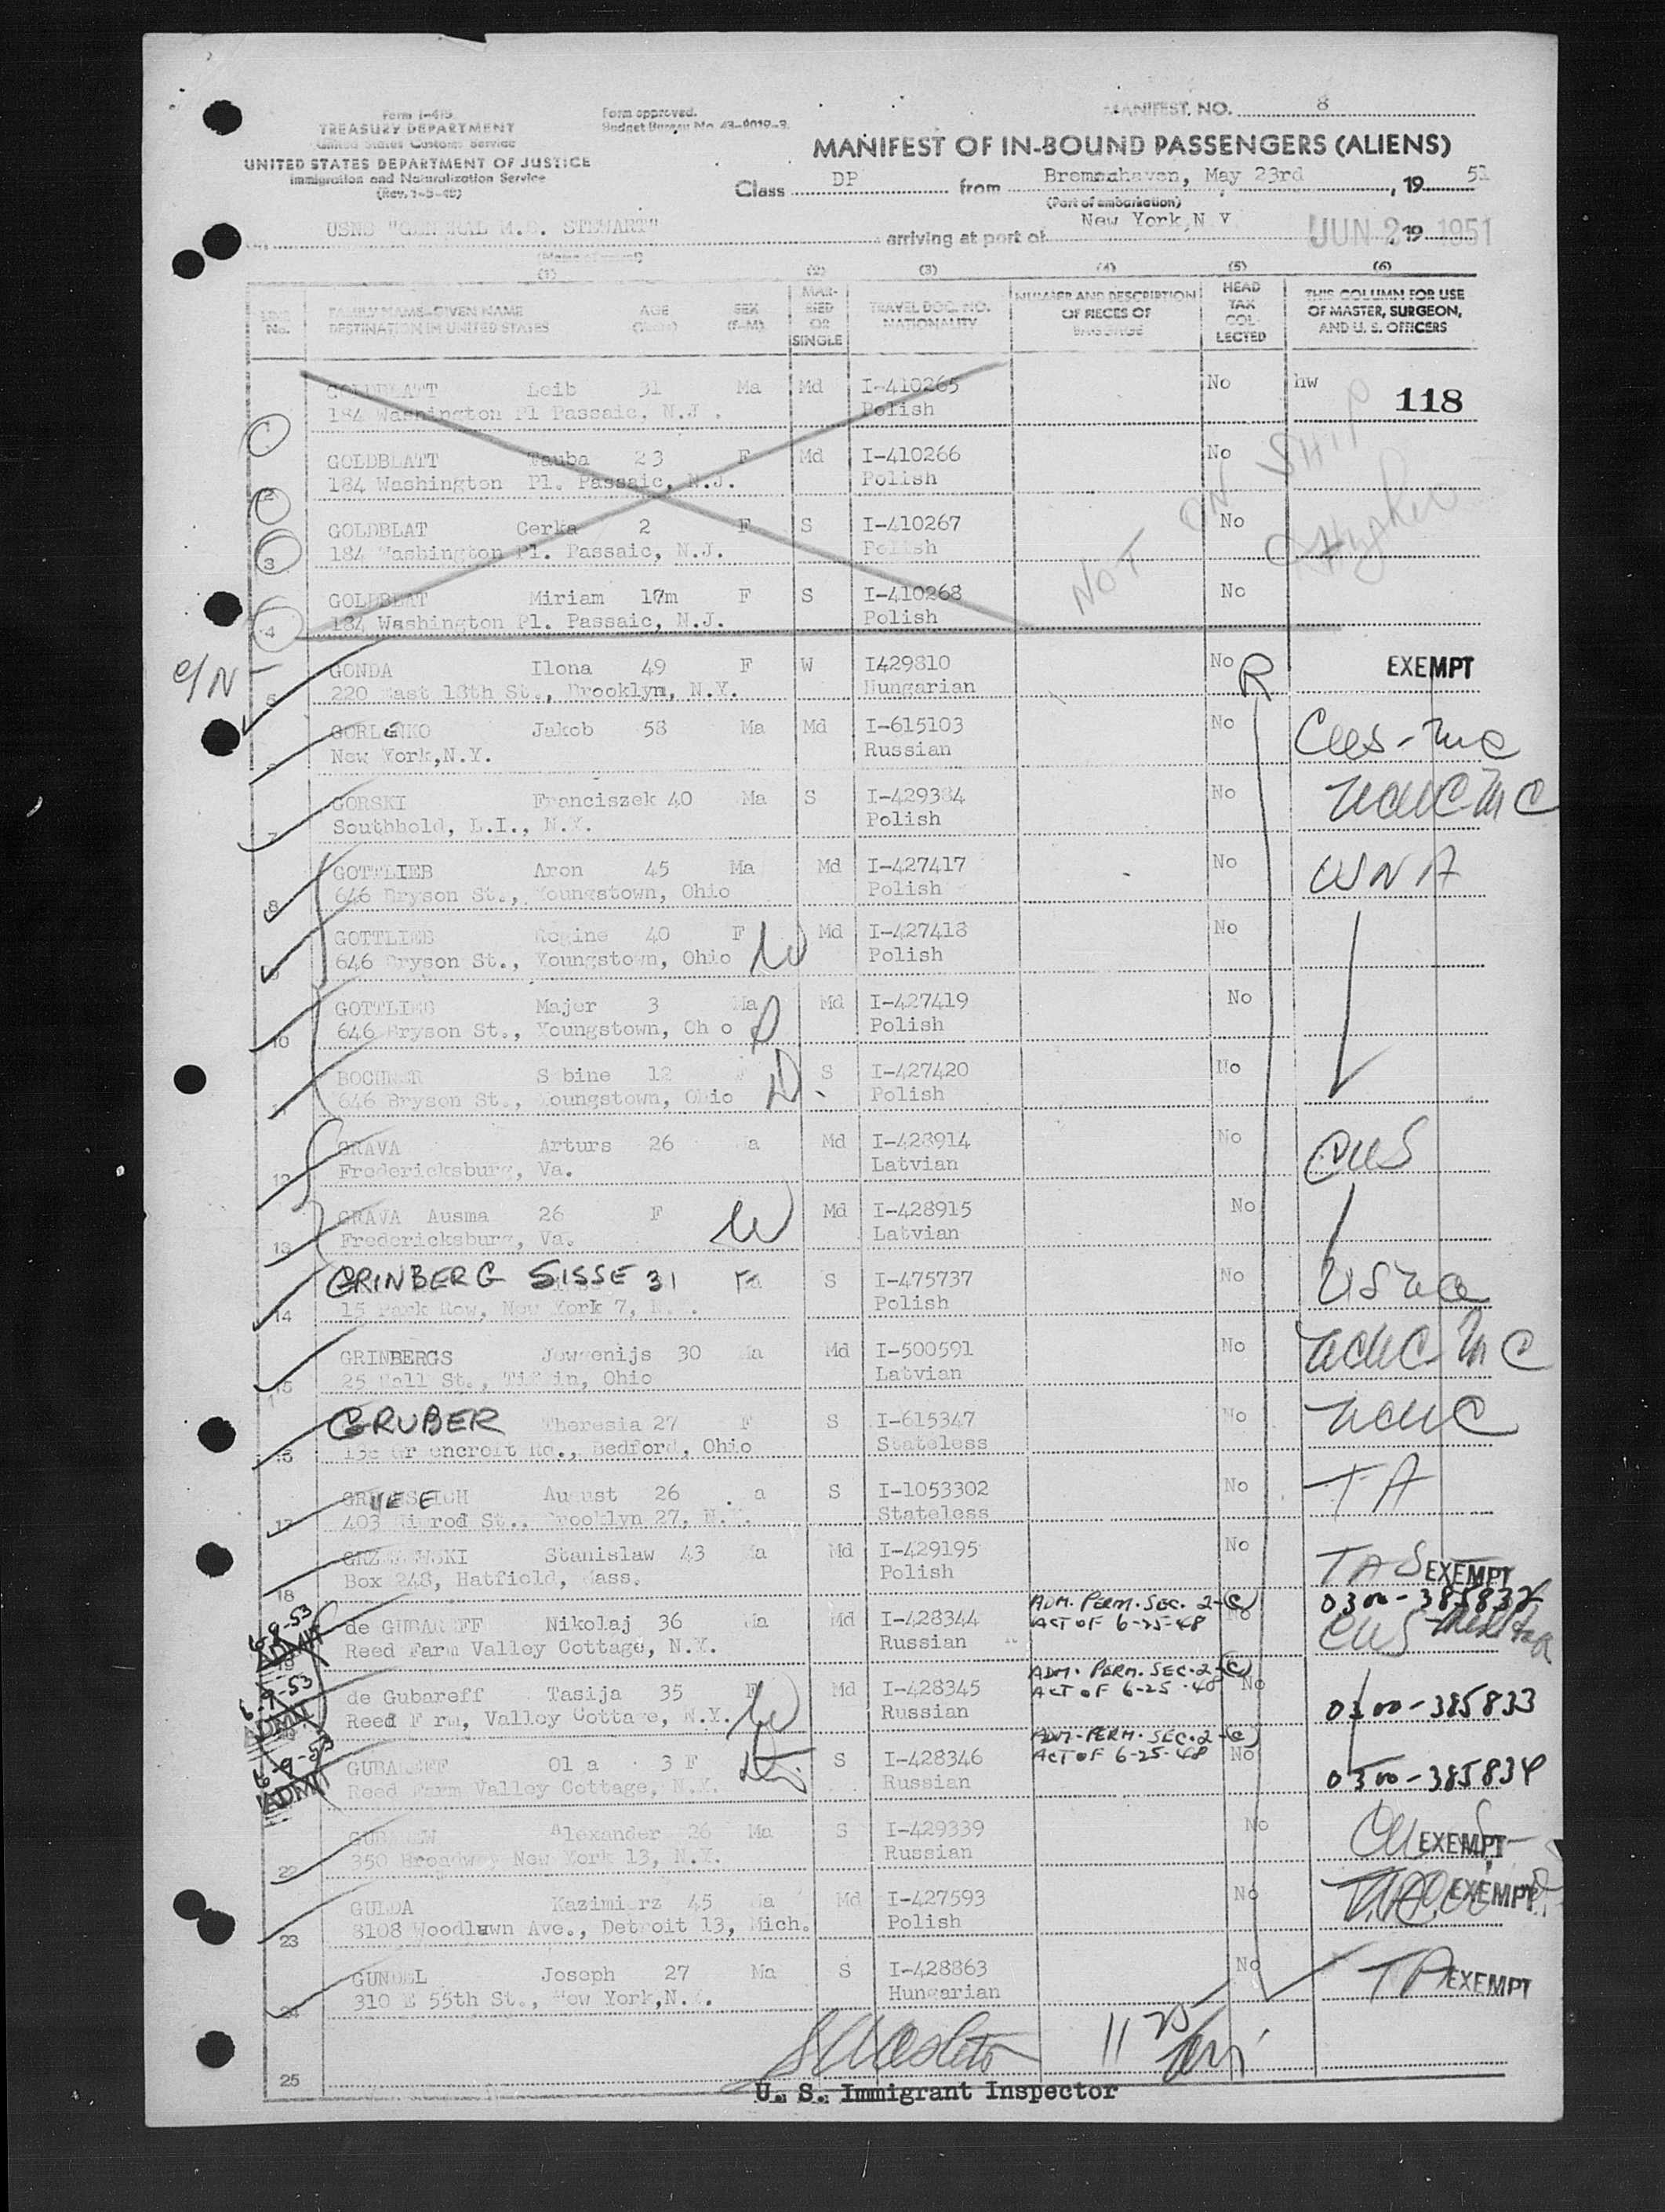 Form I-415
TREASURY DEPARTMENT
United States Customs Service
UNITED STATES DEPARTMENT OF JUSTICE
Immigration and Naturalization Service
Form approved.
Budget Bureau No. 43-
MANIFEST. NO. 8
MANIFEST OF IN-BOUND PASSENGERS (ALIENS)
Class DP from Bremenhaven, May 23rd, 19 51
(Port of embarkation)
USNS "GENERAL M.B. STEWART" arriving at port of New York, N Y JUN 2 19 1951
(Name of vessel)
(1) (2) (3) (4) (5) (6)
LINE No. FAMILY NAME-GIVEN NAME DESTINATION IN UNITED STATES AGE SEX (F-M) MARRIED OR SINGLE TRAVEL DOC. NO. NATIONALITY NUMBER AND DESCRIPTION OF PIECES OF BAGGAGE HEAD TAX COLLECTED THIS COLUMN FOR USE OF MASTER, SURGEON, AND U. S. OFFICERS
GOLDBLATT Leib 31 Ma Md I-410265 No hw 118
184 Washington Pl Passaic, N.J. Polish
GOLDBLATT Tauba 23 F Md I-410266 No
184 Washington Pl. Passaic, N.J. Polish
NOT ON SHIP
3 GOLDBLAT Cerka 2 F S I-410267 No
184 Washington Pl. Passaic, N.J. Polish
4 GOLDBLAT Miriam 17m F S I-410268 No
184 Washington Pl. Passaic, N.J. Polish
c/N 5 GONDA Ilona 49 F W I429810 No R EXEMPT
220 East 18th St., Brooklyn, N.Y. Hungarian
GORLENKO Jakob 58 Ma Md I-615103 No
New York, N.Y. Russian
7 GORSKI Franciszek 40 Ma S I-429384 No
Southhold, L.I., N.Y. Polish
8 GOTTLIEB Aron 45 Ma Md I-427417 No USNA
646 Bryson St., Youngstown, Ohio Polish
9 GOTTLIEB Regine 40 F W Md I-427418 No
646 Bryson St., Youngstown, Ohio Polish
10 GOTTLIEB Majer 3 Ma Md I-427419 No
646 Bryson St., Youngstown, Oh o Polish
BOCHNER S bine 12 S I-427420 No
646 Bryson St., Youngstown, Ohio Polish
12 GRAVA Arturs 26 a Md I-428914 No
Fredericksburg, Va. Latvian
13 GRAVA Ausma 26 F W Md I-428915 No
Fredericksburg, Va. Latvian
14 GRINBERG SISSE 31 S I-475737 No
15 Park Row, New York 7, N.Y. Polish
15 GRINBERGS Jewgenijs 30 Ma Md I-500591 No
25 Wall St., Tiffin, Ohio Latvian
16 GRUBER Theresia 27 F S I-615347 No
Rd., Bedford, Ohio Stateless
17 August 26 a S I-1053302 No TA
403 Himrod St., Brooklyn 27, N.Y. Stateless
18 Stanislaw 43 Ma Md I-429195 No TAS EXEMPT
Box 248, Hatfield, Mass. Polish
6-9-53 ADMIT 19 de GUBAREFF Nikolaj 36 Ma Md I-428344 ADM. PERM. SEC. 2-(C) No 0300-385832
Reed Farm Valley Cottage, N.Y. Russian ACT OF 6-25-48
6-9-53 ADMIT de Gubareff Tasija 35 F W Md I-428345 ADM. PERM. SEC. 2-(C) No 0300-385833
Reed F rm, Valley Cottage, N.Y. Russian ACT OF 6-25-48
6-9-53 ADMIT GUBAREFF Ol a 3 F S I-428346 ADM. PERM. SEC. 2-(C) No 0300-385834
Reed Farm Valley Cottage, N.Y. Russian ACT OF 6-25-48
22 GUBAREW Alexander 26 Ma S I-429339 No EXEMPT
350 Broadway New York 13, N.Y. Russian
23 GULDA Kazimierz 45 Ma Md I-427593 No EXEMPT
8108 Woodlawn Ave., Detroit 13, Mich. Polish
24 GUNDEL Joseph 27 Ma S I-428863 No TA EXEMPT
310 E 55th St., New York, N.Y. Hungarian
25
U. S. Immigrant Inspector